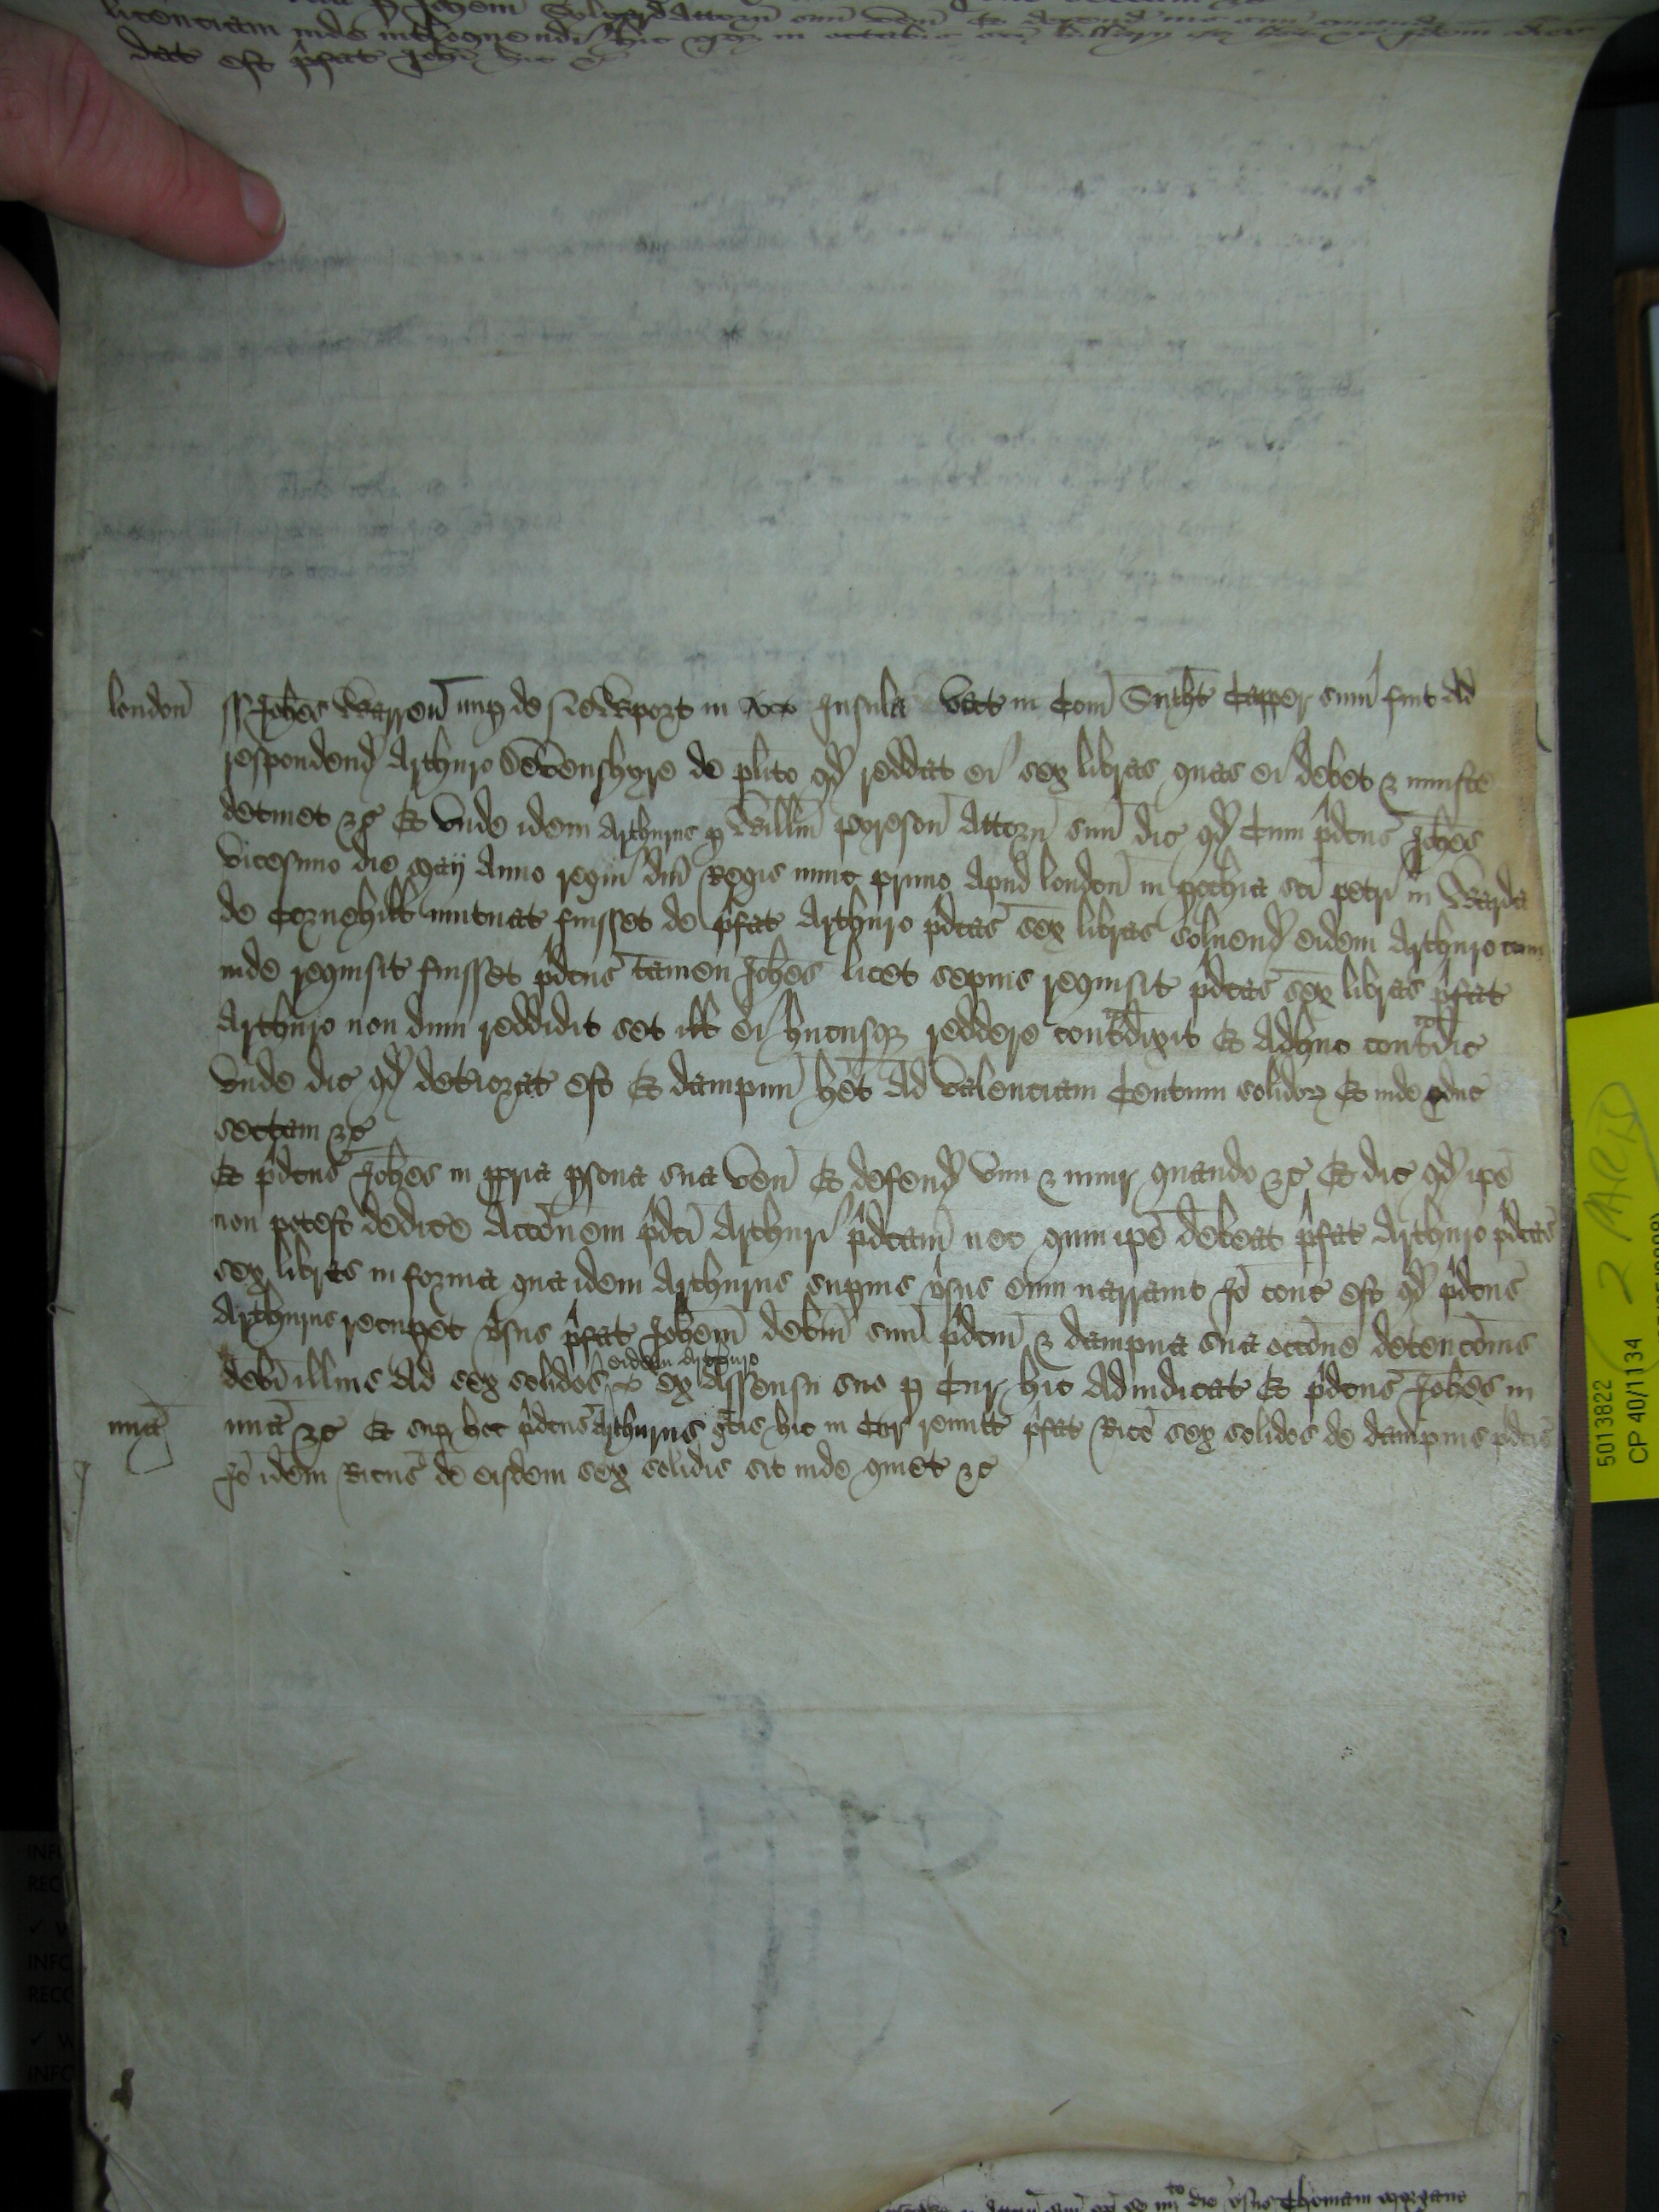 dat est p̄fat Joh̄i hic &c
london̄ ss Joh̄es Warren̄ nup de Newport in Insula Vect in Com̄ Suth̄t Capper sum̄ fuit ad
respondend̄ Arthuro Devenshyre de pl̄ito qd̄ reddat ei sex libras quas ei debet & iniuste
detinet &c Et unde idem Arthurus p Will̄m Pyreson̄ Attorn̄ suū dic̄ qd̄ Cum p̄dc̄us Joh̄es
vicesimo die Maij Anno regni dn̄i Regis nunc primo Apud london̄ in pochia sc̄i petri in Warda
de Cornehill mutuat fuisset de p̄fat Arthuro p̄dc̄as sex libras soluend̄ eidem Arthuro cum
inde requisit fuisset p̄dc̄us tamen Joh̄es licet sepius requisit p̄dc̄as sex libras p̄fat
Arthuro nondum reddidit set ill̄ ei hucusq reddere contᵃdixit Et Adhuc contᵃdic̄
unde dic̄ qd̄ deteriorat est Et dampnū h̄et Ad valenciam Centum solidoꝝ Et inde pduc̄
sectam &c
Et p̄dc̄us Joh̄es in ppria psona sua ven̄ Et defend̄ vim & iniur̄ quando &c Et dic̄ qd̄ ip̄e
non potest dedic̄e Acc̄onem p̄dc̄i Arthuri p̄dc̄am nec quin ip̄e debeat p̄fat Arthuro p̄dc̄as
sex libras in forma qua idem Arthurus supius v̄sus eum narravit Jō cons̄ est qd̄ p̄dc̄us
Arthurus recupet v̄sus p̄fat Joh̄em debitū suū p̄dc̄m & dampna sua occ̄one detenc̄onis
deb̄i illius Ad sex solidos eidem Arthuro ex Assensu suo p Cur̄ hic Adiudicat Et p̄dc̄us Joh̄es in
mīa mīa &c Et sup hoc p̄dc̄us Arthurus gr̄is hic in Cur̄ remitt p̄fat Ric̄o sex solidos de dampnis p̄dc̄is
Jō idem Ric̄us de eisdem sex solidis sit inde quiet &c
5013822
CP 40/1134
die v̄sus Thomam